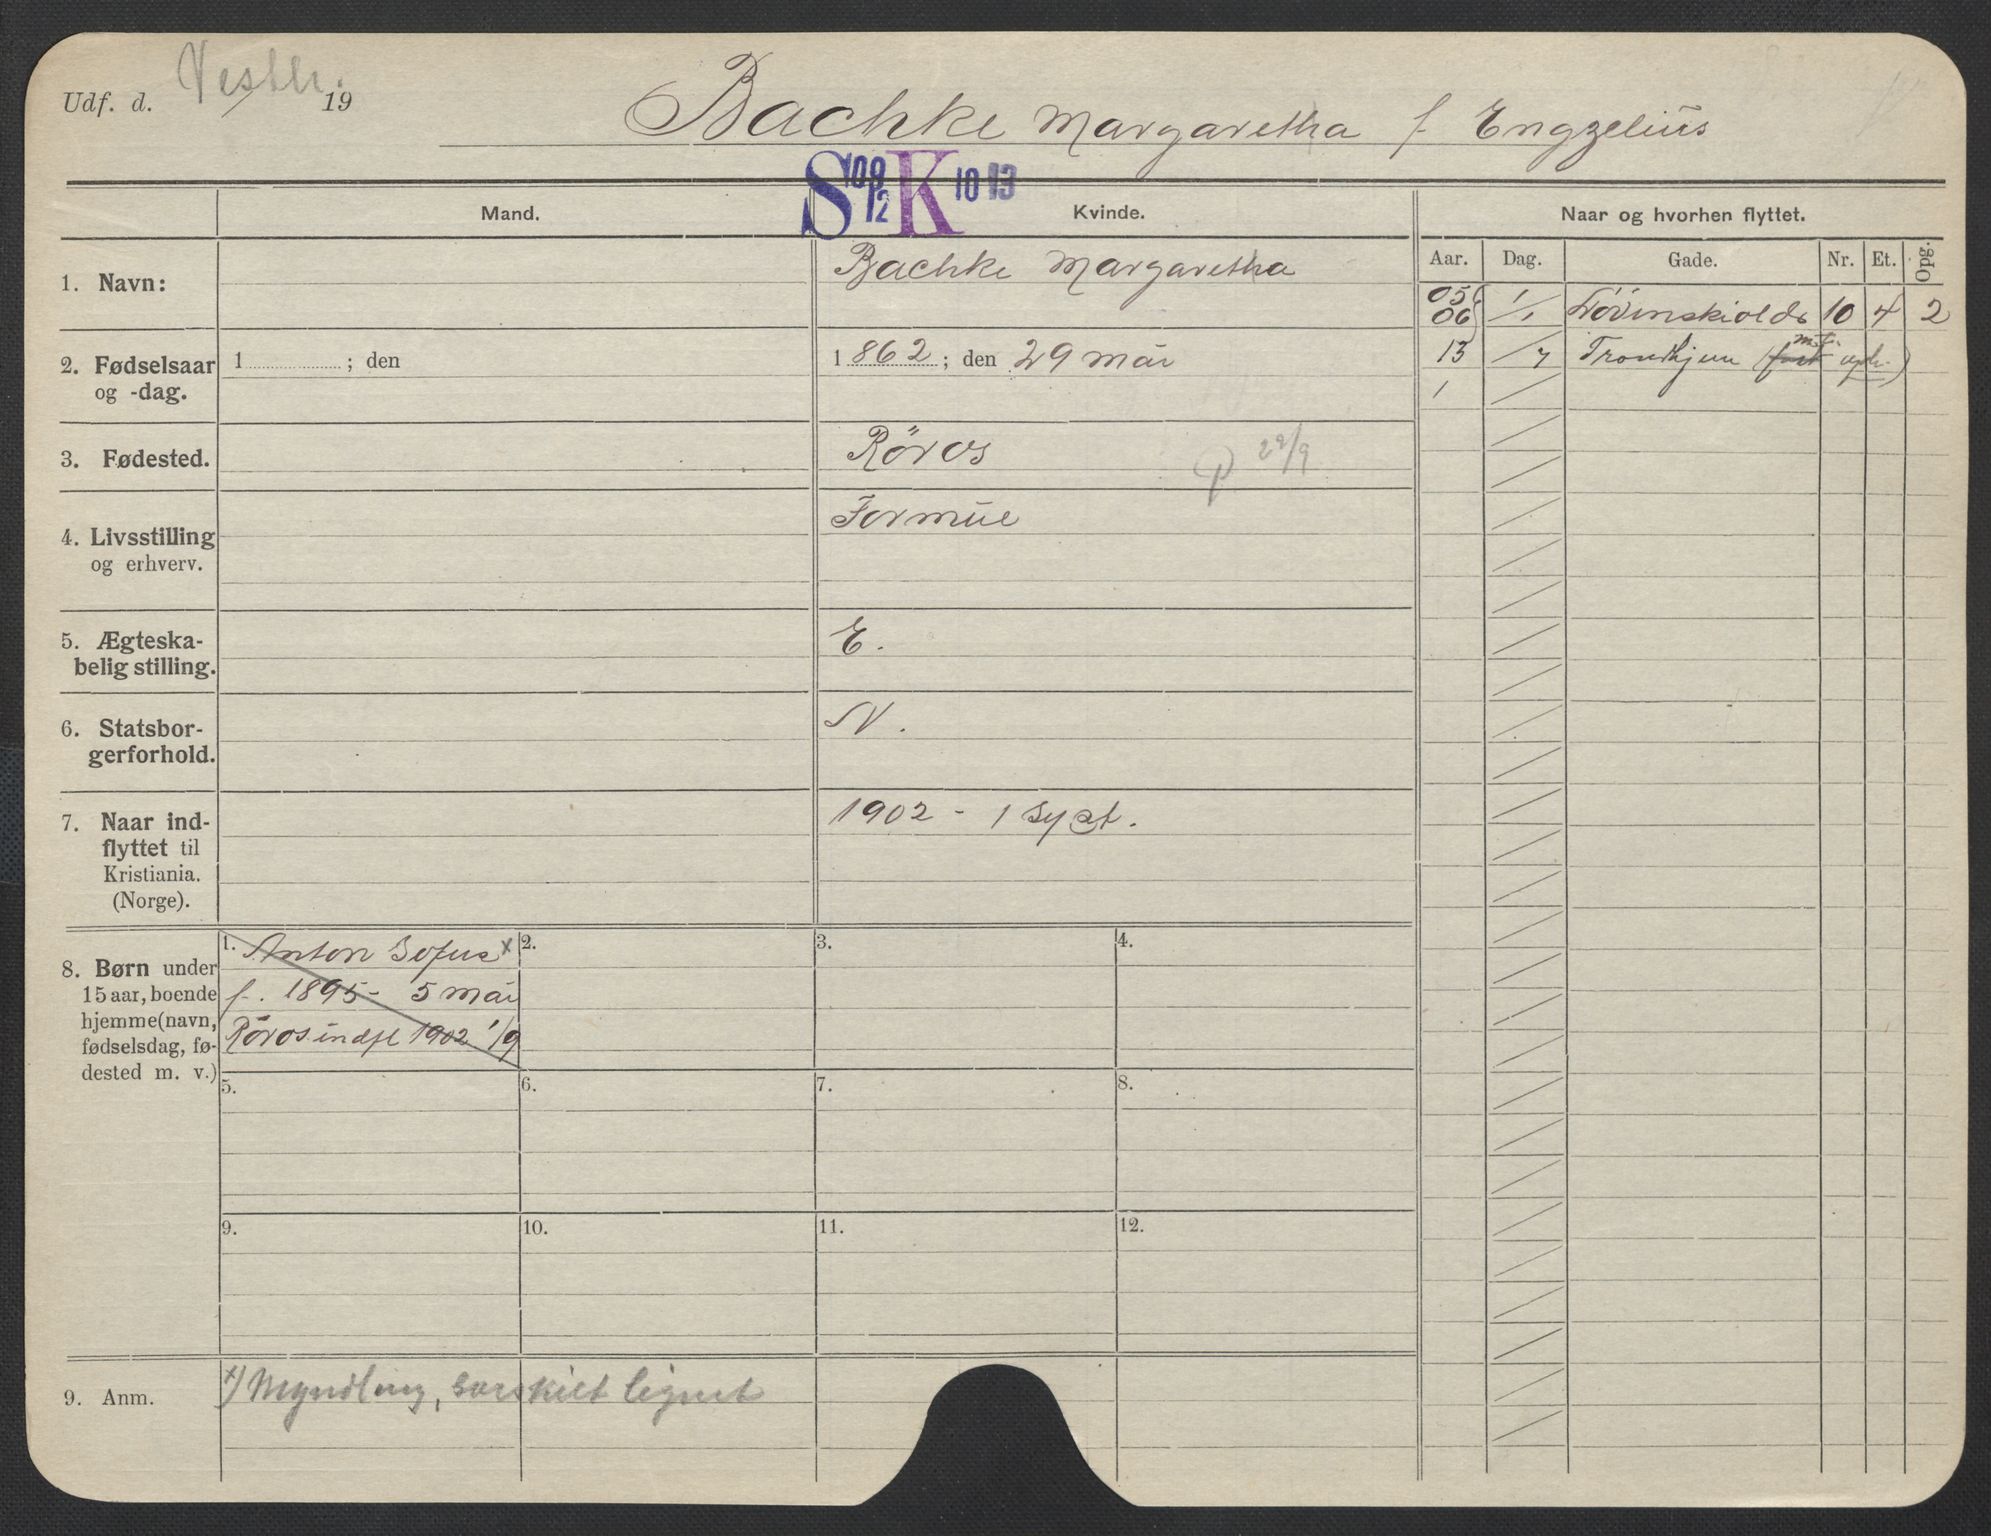 Udf. d. / 19
Bachke Margaretha f. Engzelius
S K 10 13
Mand.
Kvinde.
Naar og hvorhen flyttet.
Aar. Dag. Gade. Nr. Et. Opg.
1. Navn:
Bachke Margaretha
05 06 1/1 Lövenskiolds 10 4 2
13 /7 Trondhjem
2. Fødselsaar
og -dag.
1 ; den
1862 ; den 29 mai
3. Fødested.
Röros
P 22/9
4. Livsstilling
og erhverv.
Formue
5. Ægteska-
belig stilling.
E.
6. Statsbor-
gerforhold.
N.
7. Naar ind-
flyttet til
Kristiania.
(Norge).
1902 - 1 sept.
8. Børn under
15 aar, boende
hjemme (navn,
fødselsdag, fø-
dested m. v.)
1. Anton Sofus x
f. 1895 - 5 mai
Röros indfl 1902 1/9
2.
3.
4.
5.
6.
7.
8.
9.
10.
11.
12.
9. Anm.
x) Myndling, særskilt lignet